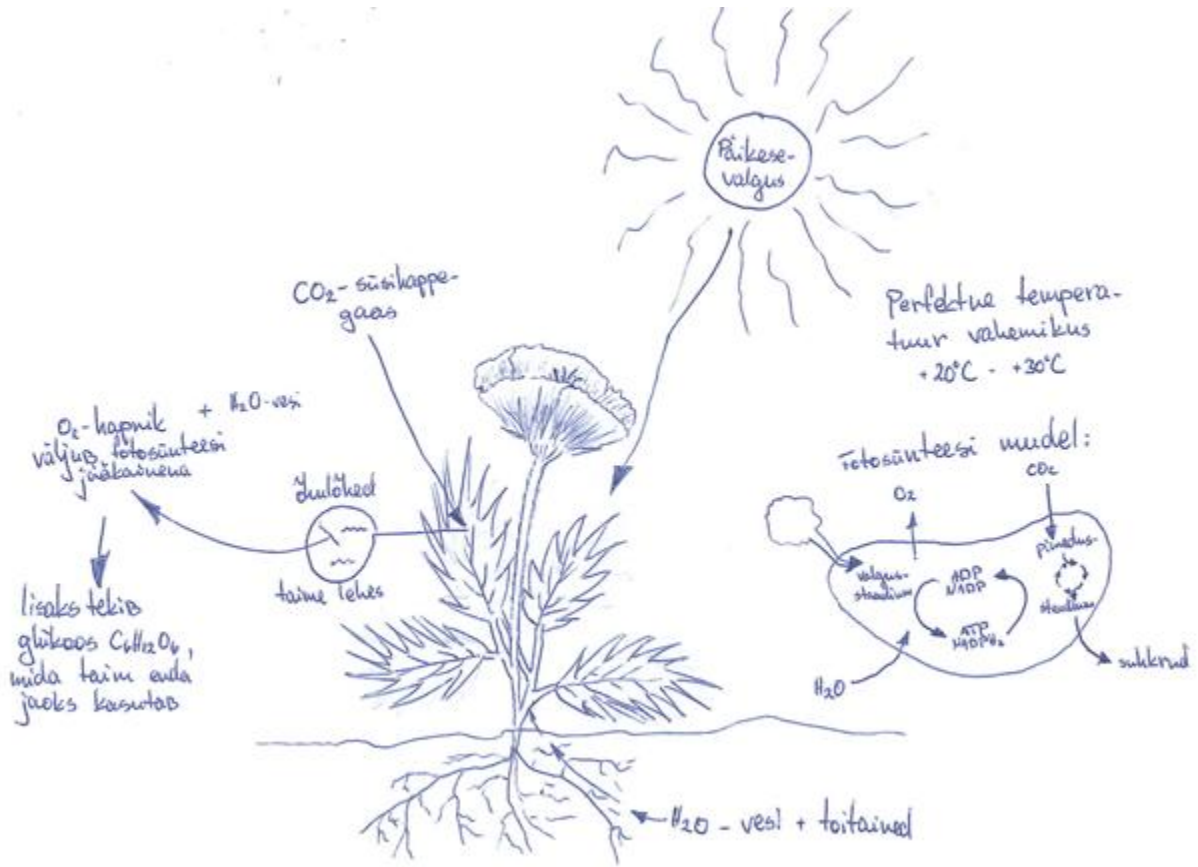 Päikese-
valgus
CO₂-süsihappe-
gaas
Perfektne tempera-
tuur vahemikus
+20°C - +30°C
O₂-hapnik + H₂O-vesi
väljub fotosünteesi
jääkainena
Õhulõhed
taime lehes
lisaks tekib
glükoos C₆H₁₂O₆,
mida taim enda
jaoks kasutab
Fotosünteesi mudel:
O₂
CO₂
valgus-
staadium
ADP
NADP
ATP
NADPH₂
pimedus-
staadium
H₂O
suhkrud
H₂O - vesi + toitained